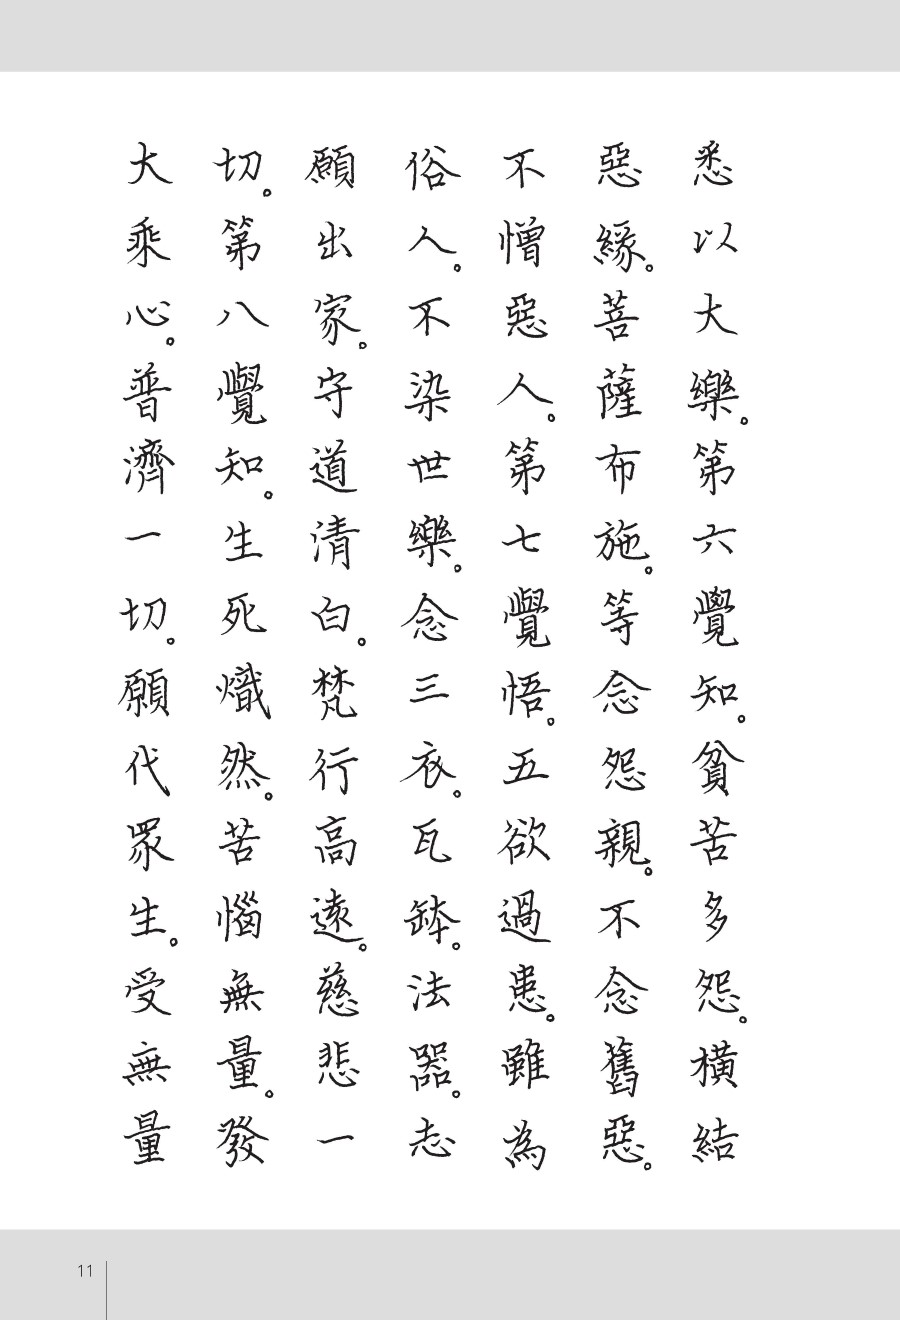 悉以大樂。第六覺知。貧苦多怨。橫結
惡緣。菩薩布施。等念怨親。不念舊惡。
不憎惡人。第七覺悟。五欲過患。雖為
俗人。不染世樂。念三衣。瓦缽。法器。志
願出家。守道清白。梵行高遠。慈悲一
切。第八覺知。生死熾然。苦惱無量。發
大乘心。普濟一切。願代眾生。受無量
11